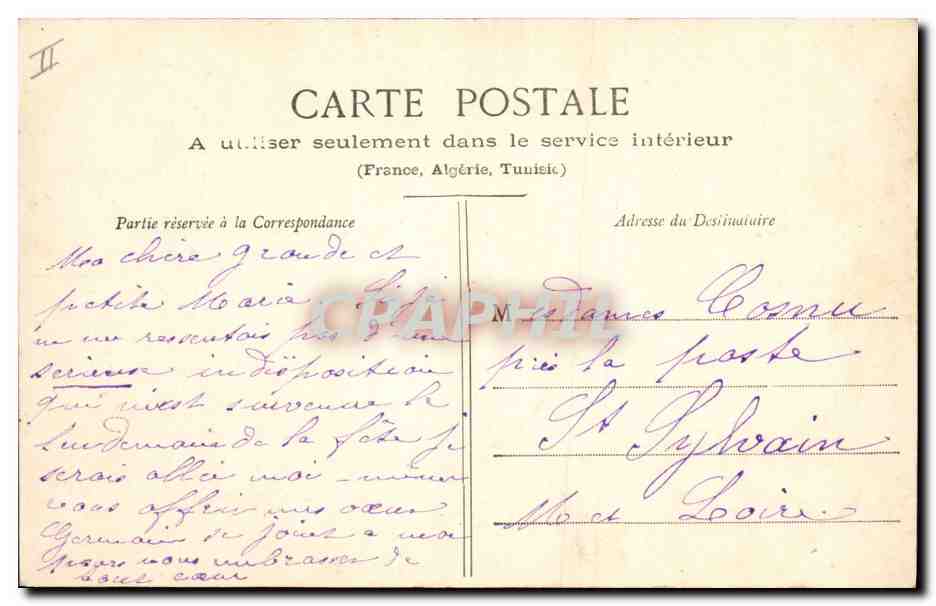 II
CARTE POSTALE
A utiliser seulement dans le service intérieur
(France, Algérie, Tunisie)
Partie réservée à la Correspondance
Ma chère grande et
petite Maria Si je
ne me ressentais pas d'une
serieuse indisposition
qui m'est survenue le
lendemain de la fête je
serais allée moi-même
vous offrir mes vœux
Germain se joint a moi
pour vous embrasser de
tout cœur
Adresse du Destinataire
Mesdames Cosnu
près la poste
St Sylvain
M et Loire
CPAPHIL